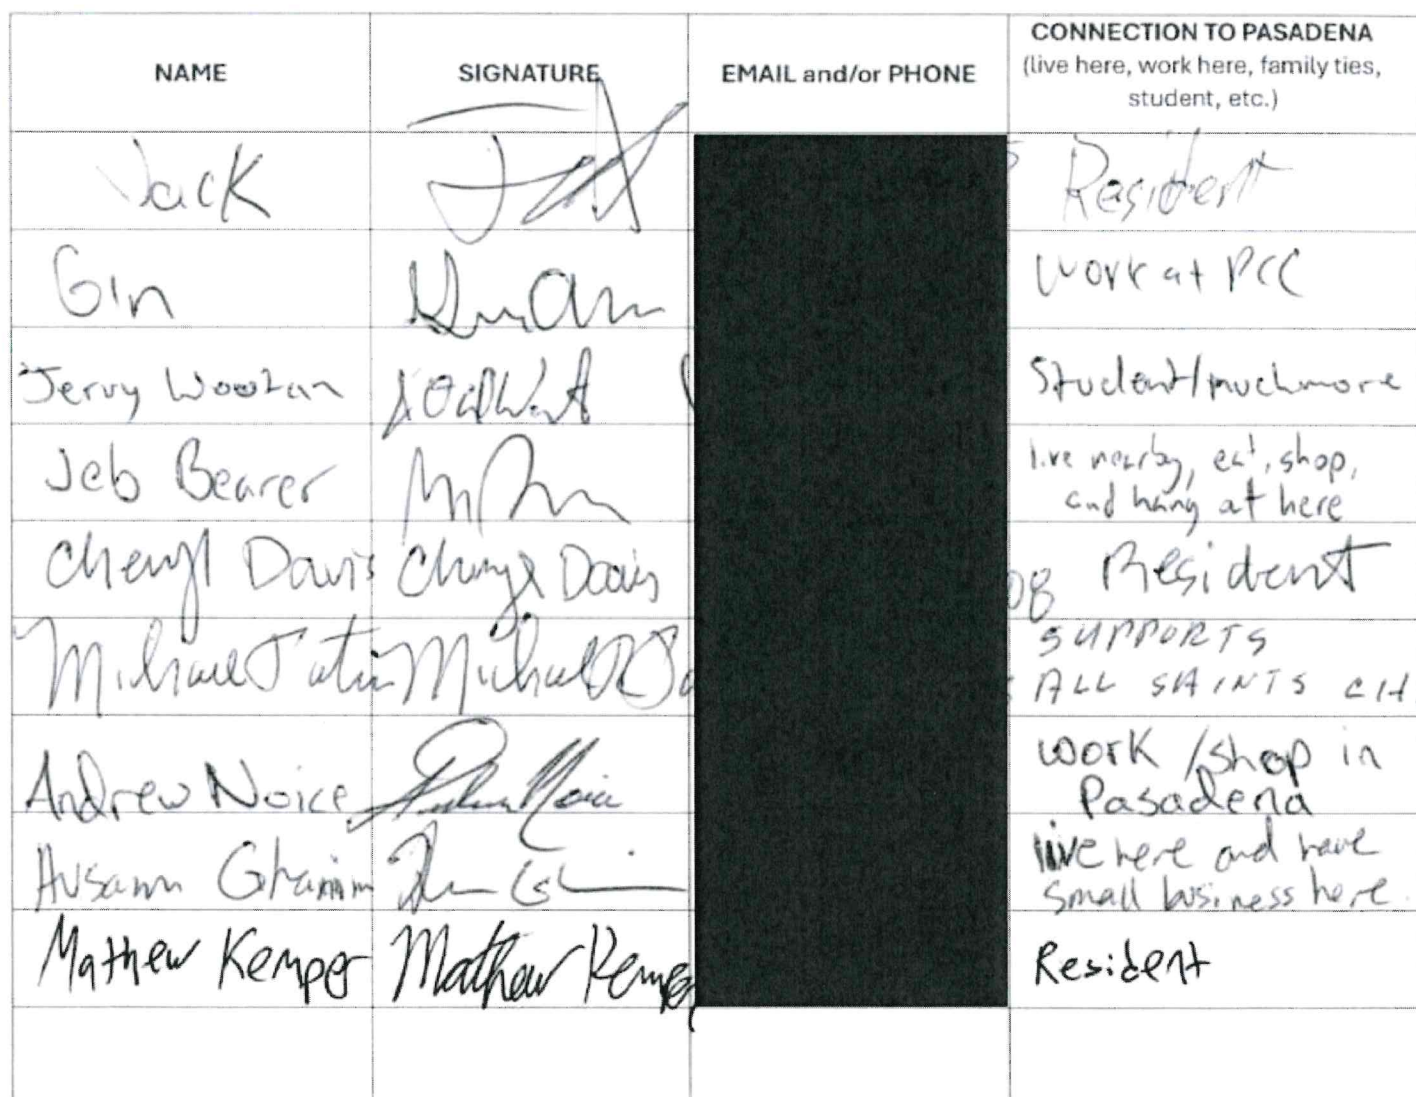 NAME
SIGNATURE
EMAIL and/or PHONE
CONNECTION TO PASADENA
(live here, work here, family ties,
student, etc.)
Jack
Resident
Gin
work at PCC
Jerry
Student/much more
Jeb Bearer
live nearby, eat, shop,
and hang at here
Cheryl Davis Cheryl Davis
08 Resident
Michael Michael
SUPPORTS
ALL SAINTS CH
Andrew Noice
work /shop in
Pasadena
live here and have
small business here.
Mathew Kemper Mathew Kemper
Resident